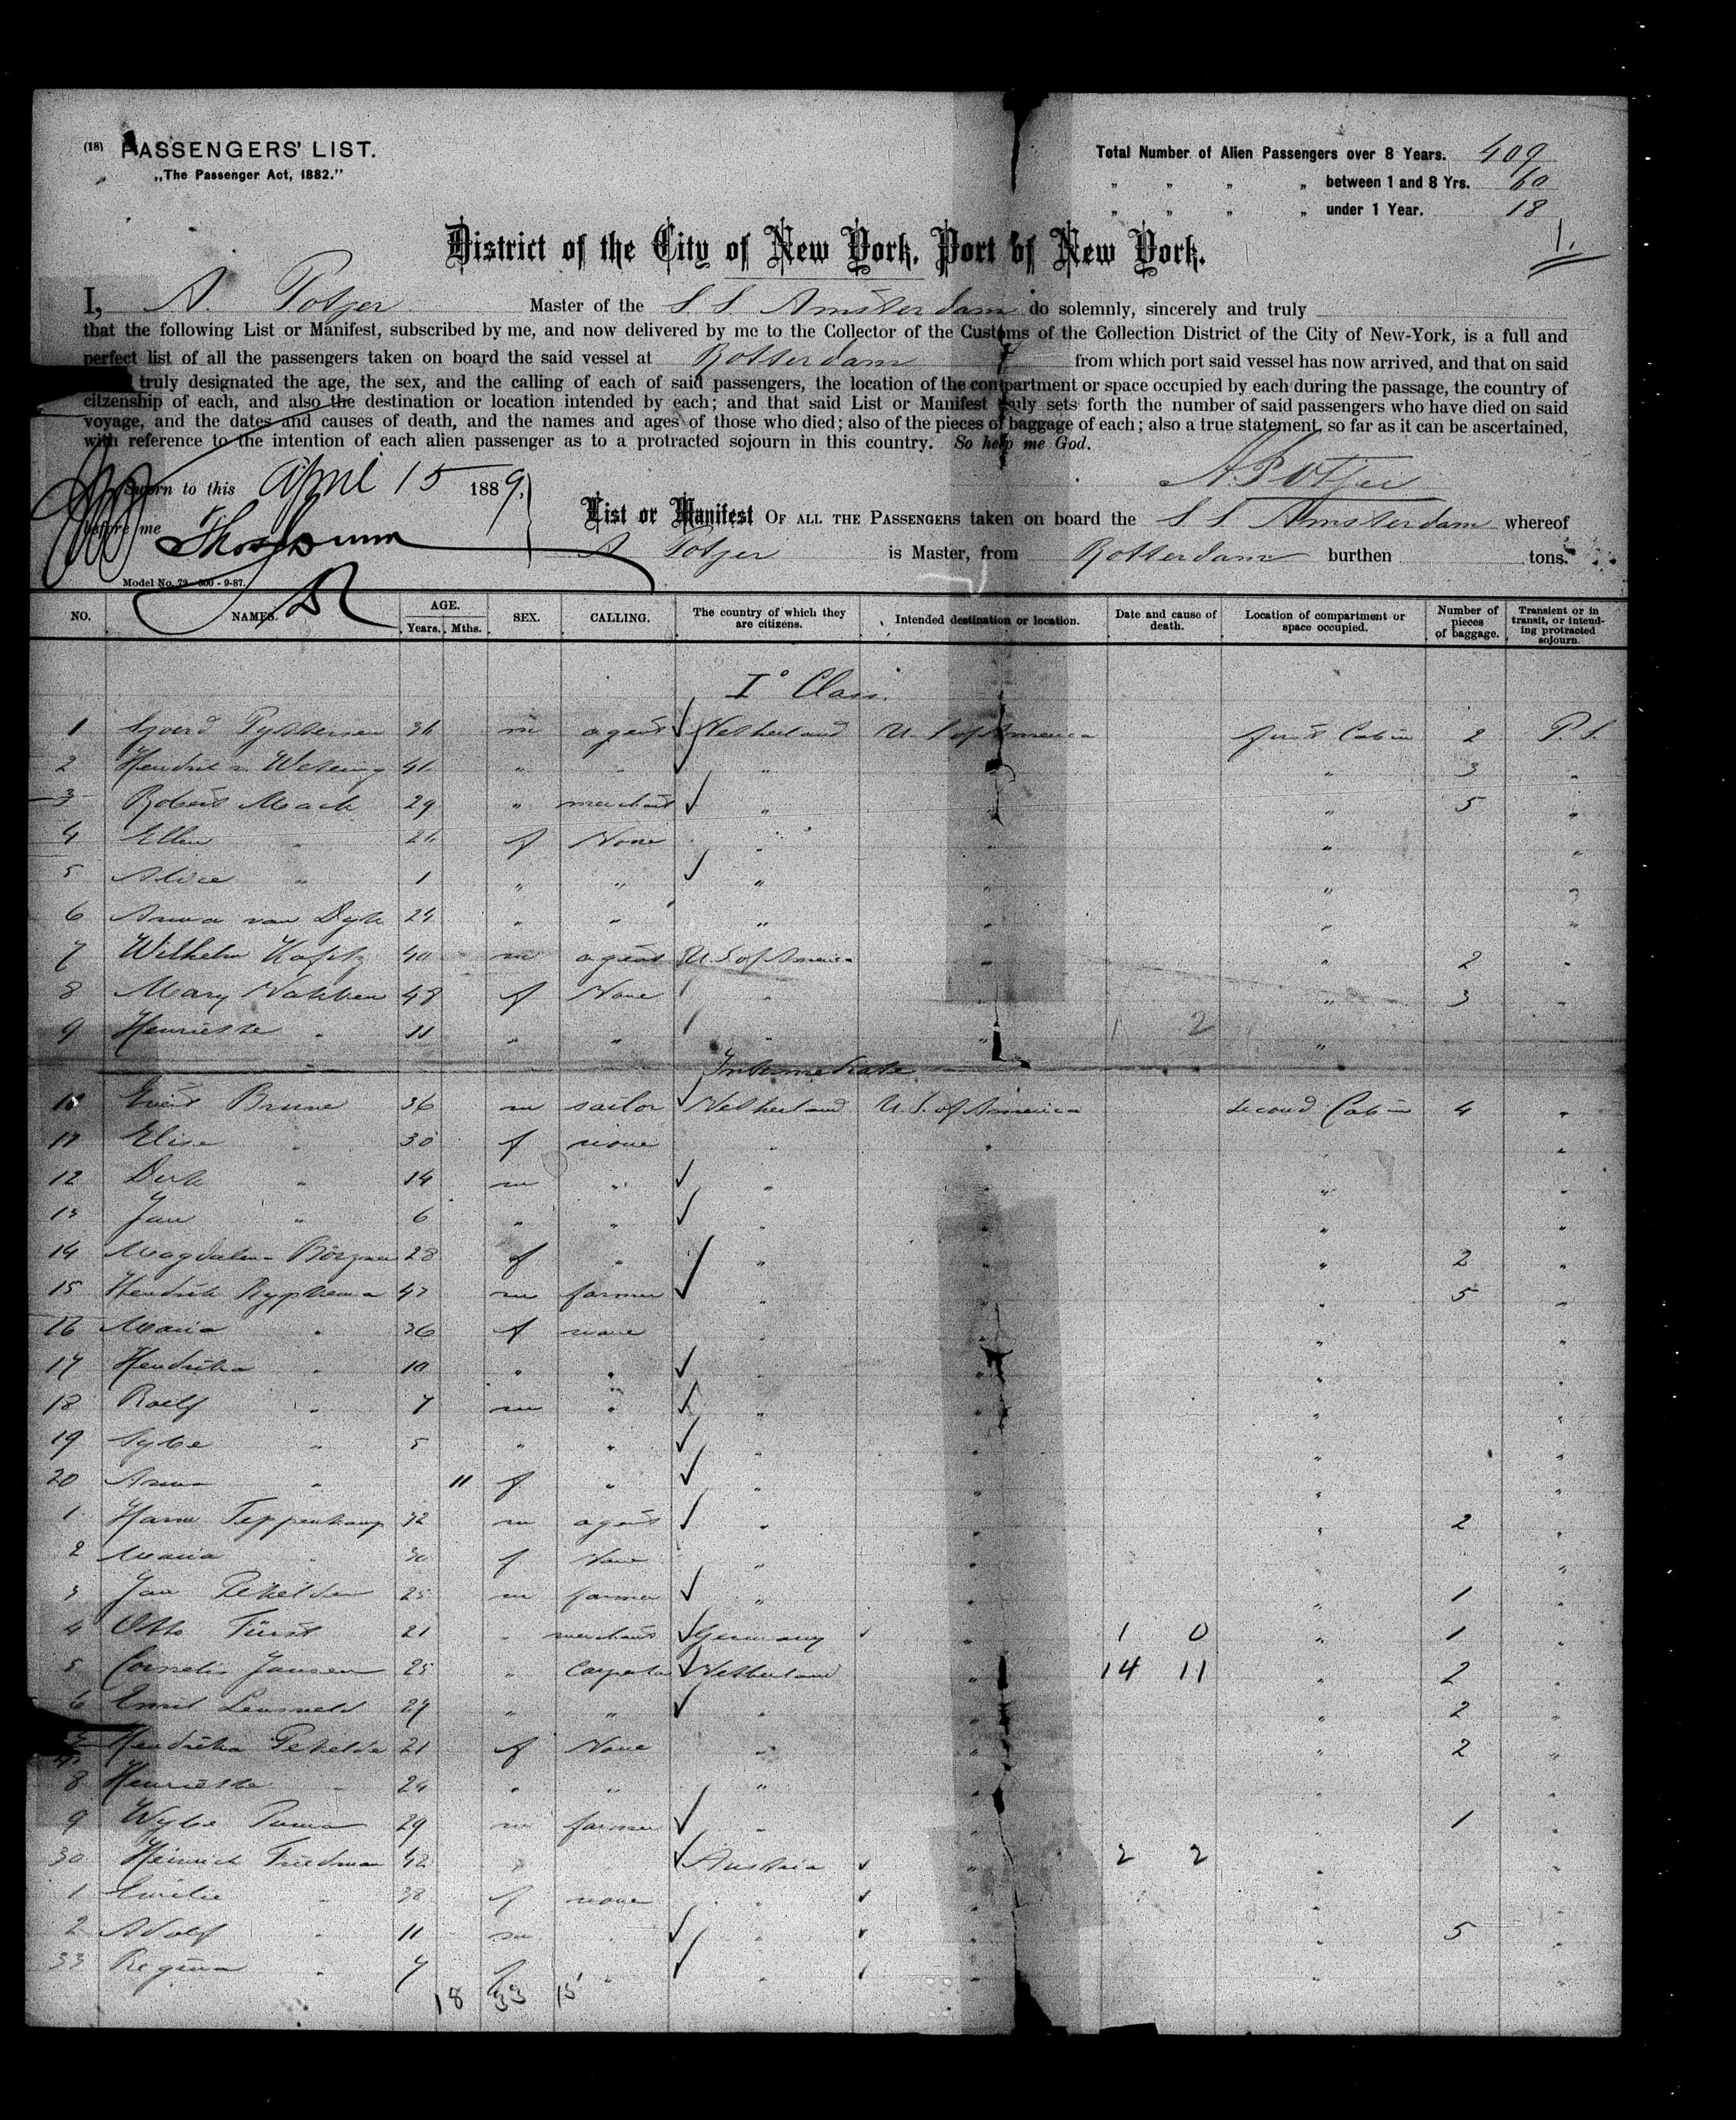 (18) PASSENGERS' LIST.
„The Passenger Act, 1882.”
Total Number of Alien Passengers over 8 Years. 409
„ „ „ „ between 1 and 8 Yrs. 60
„ „ „ „ under 1 Year. 18
1.
District of the City of New York, Port of New York.
I, A. Potzer Master of the S. S. Amsterdam do solemnly, sincerely and truly
that the following List or Manifest, subscribed by me, and now delivered by me to the Collector of the Customs of the Collection District of the City of New-York, is a full and
perfect list of all the passengers taken on board the said vessel at Rotterdam from which port said vessel has now arrived, and that on said
truly designated the age, the sex, and the calling of each of said passengers, the location of the compartment or space occupied by each during the passage, the country of
citzenship of each, and also the destination or location intended by each; and that said List or Manifest truly sets forth the number of said passengers who have died on said
voyage, and the dates and causes of death, and the names and ages of those who died; also of the pieces of baggage of each; also a true statement, so far as it can be ascertained,
with reference to the intention of each alien passenger as to a protracted sojourn in this country. So help me God.
Sworn to this April 15 1889, A Potzer
before me
List or Manifest OF ALL THE PASSENGERS taken on board the S S Amsterdam whereof
A Potzer is Master, from Rotterdam burthen tons.
Model No. 73 - 500 - 9-87.
NO. NAMES. AGE. Years. Mths. SEX. CALLING. The country of which they are citizens. Intended destination or location. Date and cause of death. Location of compartment or space occupied. Number of pieces of baggage. Transient or in transit, or intending protracted sojourn.
I° Class.
1 36 m agent Netherland U. S. of America first Cabin 2 P. S.
2 Hendrik v. " " " 3 "
3 Robert Mack 29 " merchant " " 5 "
4 Ellen " f None " " " "
5 Alice " 1 " " " " " "
6 Anna van Dyk 24 " " " " " "
7 Wilhelm 40 m agent U. S. of America " " 2 "
8 Mary 48 f None " " " 3 "
9 Henriette " 11 " " " " 1 2 "
Intermediate
10 Evert Brune 36 m sailor Netherland U. S. of America second Cabin 4 "
11 Elise " 30 f none " " "
12 Derk " 14 m " " " " "
13 Jan " 6 " " " " "
14 Magdalena 28 f " " " " 2 "
15 Hendrik Rypkema 47 m farmer " " " 5 "
16 Maria " 36 f none " " " "
17 Hendrika " 10 " " " " " "
18 Roelf " 7 m " " " " "
19 Sybe " 5 " " " " " "
20 Anna " 11 f " " " " "
1 Harm Teppenkamp 32 m agent " " " 2 "
2 Maria " 30 f None " " "
3 Jan Pekelder 25 m farmer " " " 1 "
4 Otto Fürst 21 " merchant Germany " 1 0 " 1 "
5 Cornelis Jansen 25 " Netherland " 14 11 " 2 "
6 Emil " " " " " 2 "
7 Hendrika Pekelder 21 f None " " " 2 "
8 Henriette " " " " "
9 Wybe 29 m farmer " " " 1 "
30 Heinrich Friedman 42 " Austria " 2 2 " "
1 Emilie " 38 f none " " " "
2 Adolf " 11 m " " " " 5 "
33 Regina " 7 f " " " " "
18 33 15